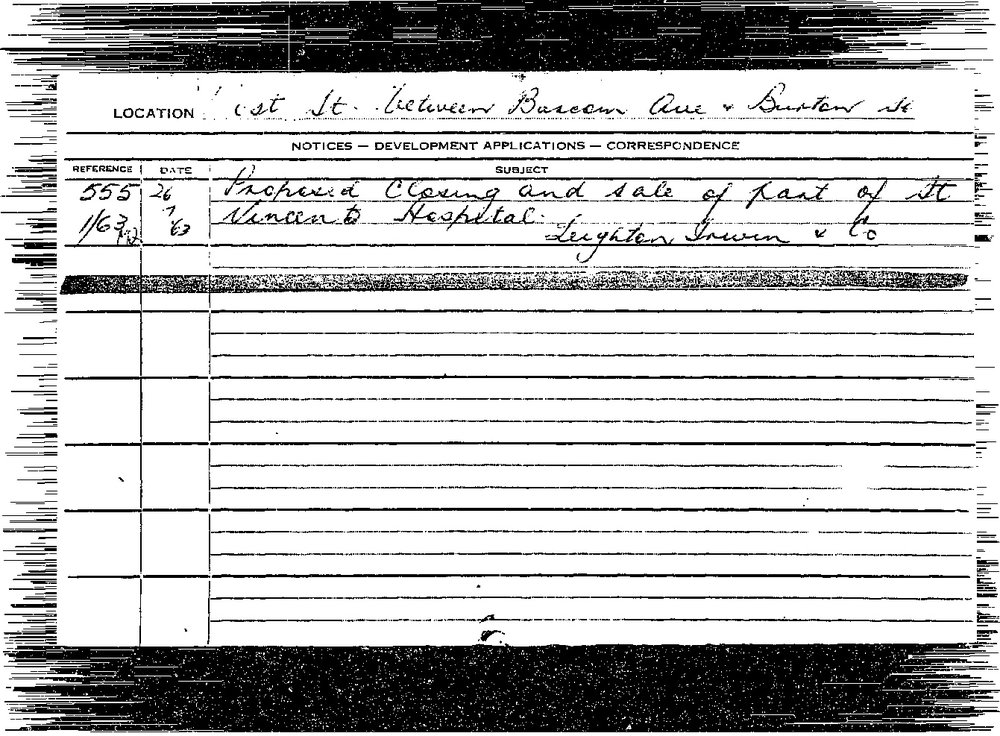 LOCATION St. between Barcom Ave & Burton St
NOTICES — DEVELOPMENT APPLICATIONS — CORRESPONDENCE
REFERENCE DATE SUBJECT
555 26 Proposed Closing and sale of part of St
1/63 7 Vincents Hospital.
'63 Leighton Irwin & Co